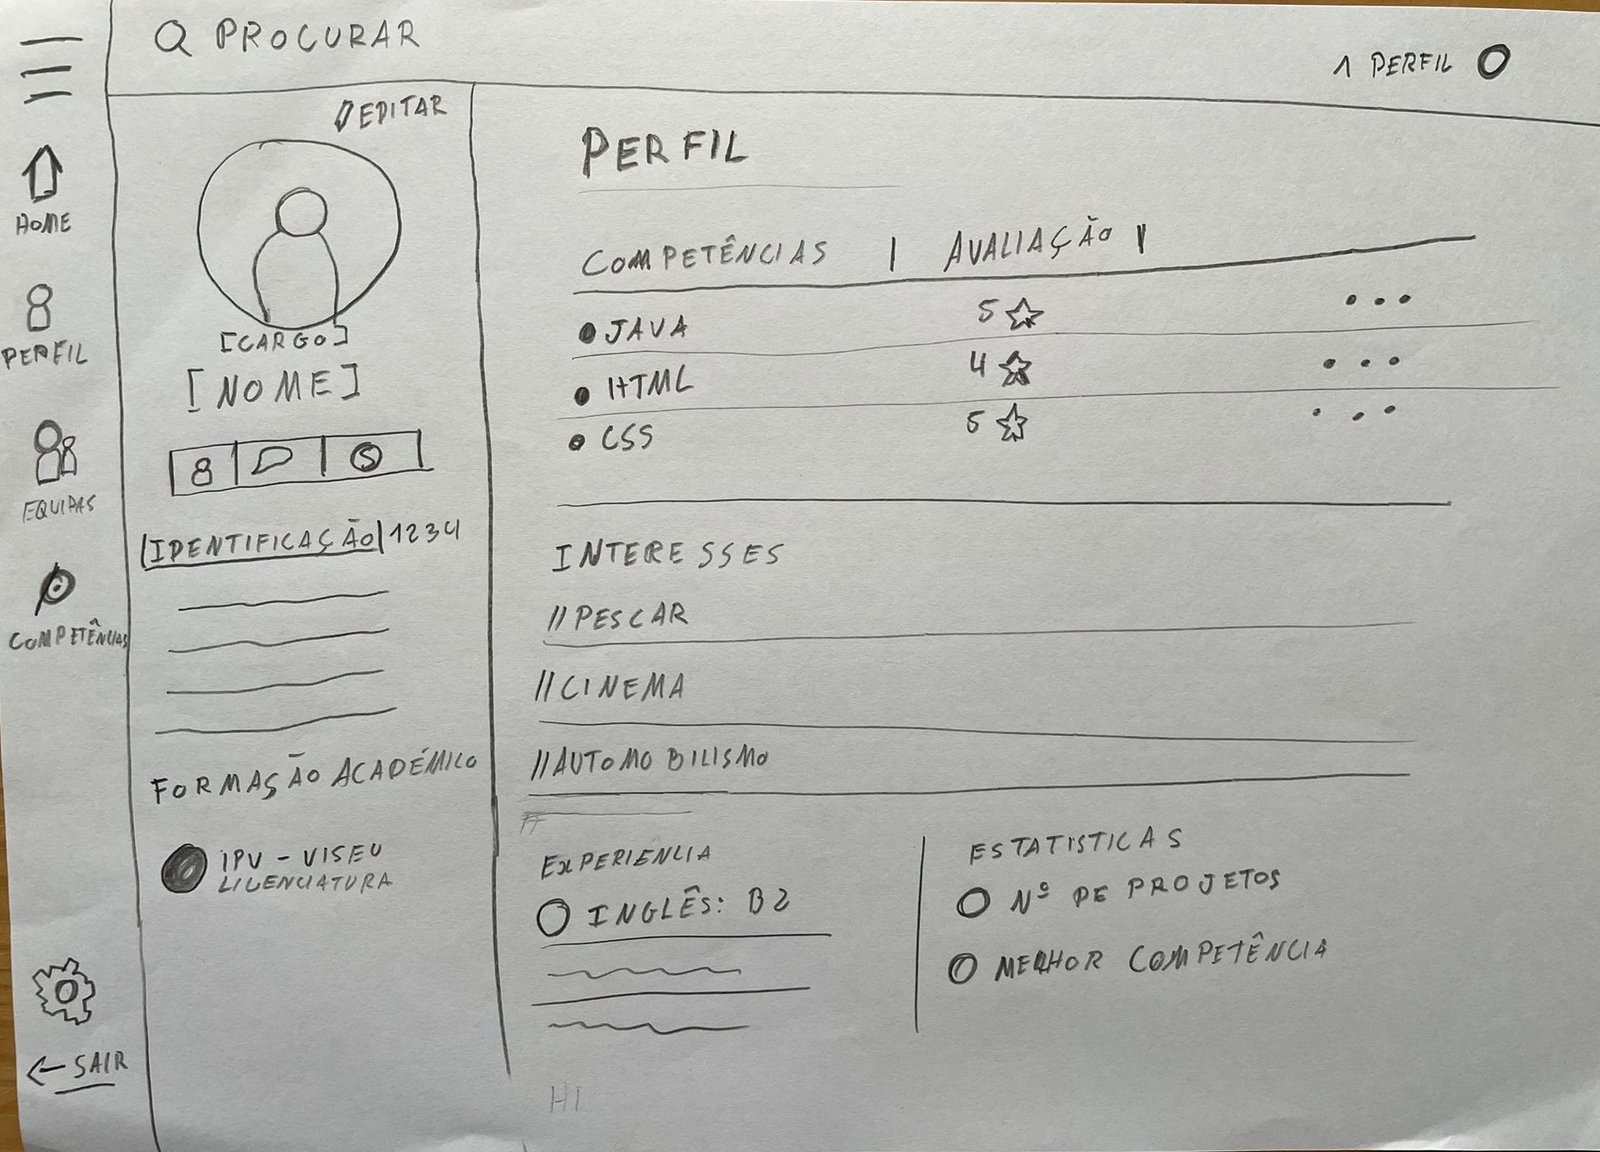 PROCURAR
1 PERFIL
EDITAR
HOME
PERFIL
EQUIPAS
COMPETÊNCIAS
SAIR
[CARGO]
[NOME]
|IDENTIFICAÇÃO| 1234
FORMAÇÃO ACADÉMICO
IPV - VISEU
LICENCIATURA
PERFIL
COMPETÊNCIAS | AVALIAÇÃO |
JAVA 5 ...
HTML 4 ...
CSS 5 ...
INTERESSES
// PESCAR
// CINEMA
// AUTOMOBILISMO
EXPERIÊNCIA
INGLÊS: B2
ESTATISTICAS
Nº DE PROJETOS
MELHOR COMPETÊNCIA
HI